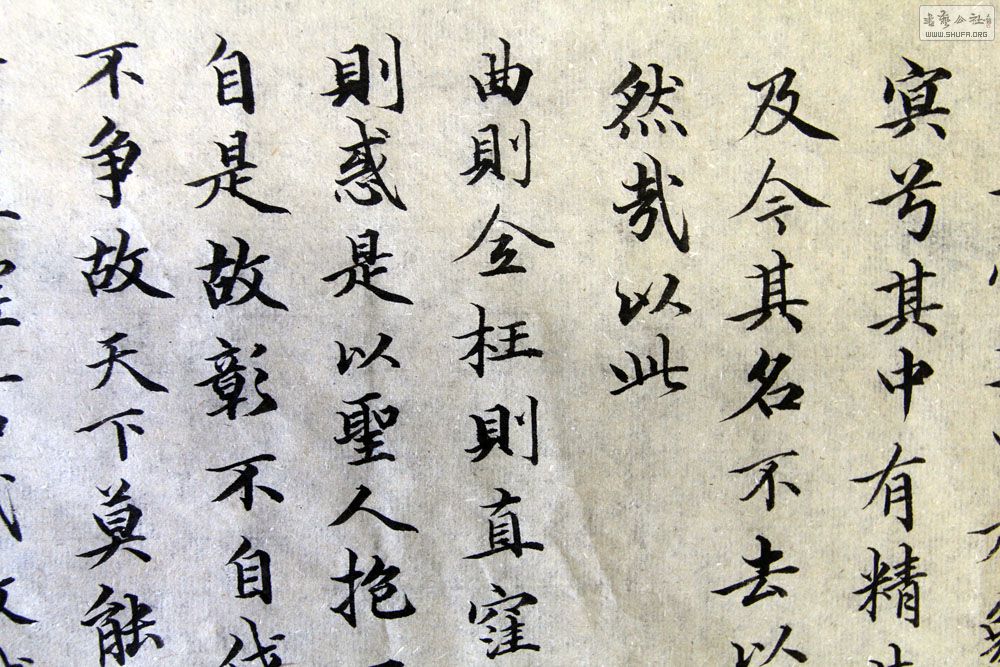 冥兮其中有精
及今其名不去以
然哉以此
曲則全枉則直窪
則惑是以聖人抱
自是故彰不自伐
不争故天下莫能
WWW.SHUFA.ORG